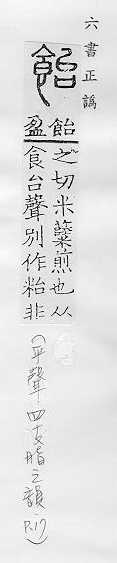 六書正譌
飴
飴之切米糵煎也从
盈食台聲別作𥹋非
(平聲四支脂之韻 P.17)